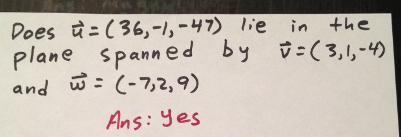 Does u⃗ = (36,-1,-47) lie in the
plane spanned by v⃗ = (3,1,-4)
and w⃗ = (-7,2,9)
Ans: Yes